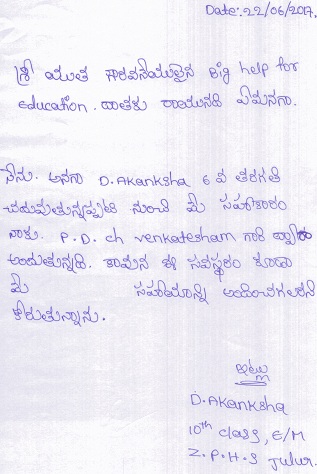 Date: 22/06/2017.
శ్రీ యుత గౌరవనీయులైన Big help for
education. దాతకు రాయునది ఏమనగా.
నేను. అనగా D. Akanksha 6 వ తరగతి
చదువుతున్నప్పటి నుంచి మీ సహకారం
నాకు. P. D. ch venkatesham గారి ద్వారా
అందుతున్నది. కావున ఈ సంవత్సరం కూడా
మీ సహాయాన్ని అందించగలరని
కోరుతున్నాను.
ఇట్లు
D. Akanksha
10th class, E/M
Z. P. H. S Julur.